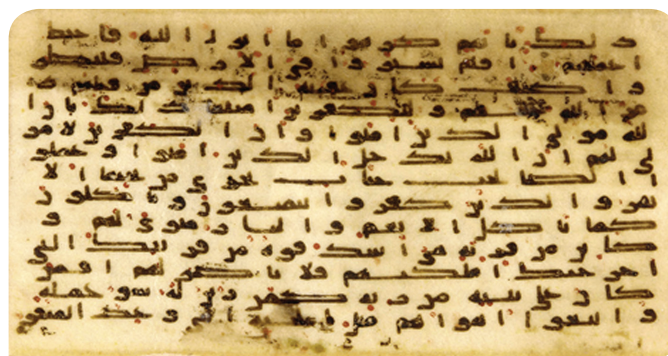 ذلك بانهم كرهوا ما انزل الله فاحبط
اعملهم افلم يسيروا في الارض فينظر
وا كيف كان عقبة الذين من قبلهم د
مر الله عليهم وللكفرين امثلها ذلك بان ا
لله مولى الذين امنوا وان الكفرين لا مو
لى لهم ان الله يدخل الذين امنوا وعملو
ا الصلحت جنت تجري من تحتها الا
نهر والذين كفروا يتمتعون وياكلون
كما تاكل الانعم والنار مثوى لهم و
كاين من قرية هي اشد قوة من قريتك التي
اخرجتك اهلكنهم فلا ناصر لهم افمن
كان على بينة من ربه كمن زين له سو عمله
واتبعوا اهواهم مثل الجنة التي وعد المتقو
ن